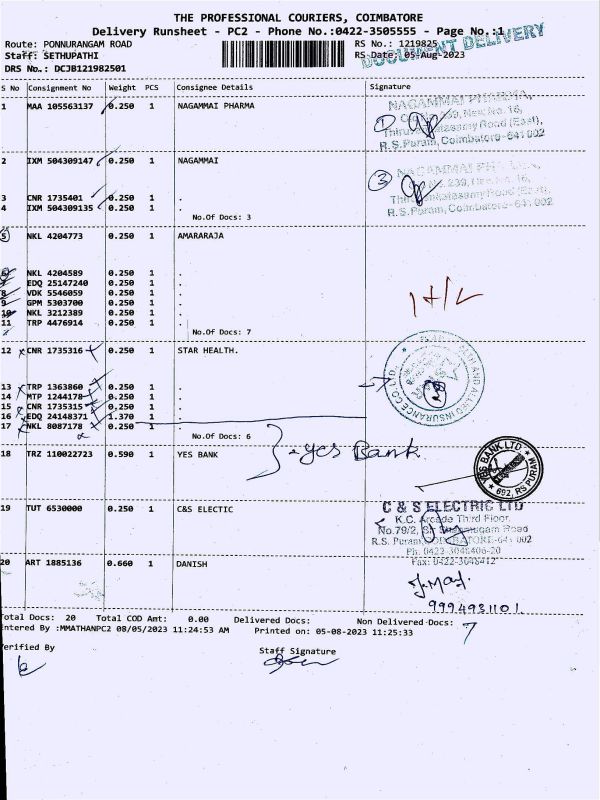 THE PROFESSIONAL COURIERS, COIMBATORE
Delivery Runsheet - PC2 - Phone No.:0422-3505555 - Page No.:1
Route: PONNURANGAM ROAD RS No.: 1219825
Staff: SETHUPATHI RS Date: 05-Aug-2023
DOCUMENT DELIVERY
DRS No.: DCJB121982501
S No Consignment No Weight PCS Consignee Details Signature
1 MAA 105563137 0.250 1 NAGAMMAI PHARMA
NAGAMMAI PHARMA,
239, New No. 16,
Road (East),
R.S.Puram, Coimbatore-641 002
1
2 IXM 504309147 0.250 1 NAGAMMAI
3
239, New No. 16,
Road (East),
R.S.Puram, Coimbatore-641 002
3 CNR 1735401 0.250 1 .
4 IXM 504309135 0.250 1 .
No.Of Docs: 3
5 NKL 4204773 0.250 1 AMARARAJA
6 NKL 4204589 0.250 1 .
7 EDQ 25147240 0.250 1 .
8 VDK 5546059 0.250 1 .
9 GPM 5303700 0.250 1 .
10 NKL 3212389 0.250 1 .
11 TRP 4476914 0.250 1 .
No.Of Docs: 7
12 CNR 1735316 0.250 1 STAR HEALTH.
AND ALLIED INSURANCE CO.LTD.
13 TRP 1363860 0.250 1 .
14 MTP 1244178 0.250 1 .
15 CNR 1735315 0.250 1 .
16 EDQ 24148371 1.370 1 .
17 NKL 8087178 0.250 1 .
No.Of Docs: 6
Yes Bank
18 TRZ 110022723 0.590 1 YES BANK
YES BANK LTD
692, RS PURAM
19 TUT 6530000 0.250 1 C&S ELECTIC
C & S ELECTRIC LTD
K.C. Arcade Third Floor,
No.79/2, Road
R.S. Puram, COIMBATORE-641 002
Ph: 0422-3048406-20
Fax: 0422-3048412
20 ART 1885136 0.660 1 DANISH
9994931101
Total Docs: 20 Total COD Amt: 0.00 Delivered Docs: Non Delivered Docs: 7
Entered By :MMATHANPC2 08/05/2023 11:24:53 AM Printed on: 05-08-2023 11:25:33
Verified By Staff Signature